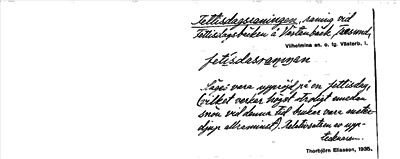 Fettisdagsraningen, raning vid
Fettisdagsbäcken å Västanbäck, Tresund,
Vilhelmina sn. o. tg. Västerb. l.
fetisdasrannan
Säges vara uppröjd på en fettisdag,
(vilket verkar högst troligt emedan
snön vid denna tid brukar vara
djup allraminst). Relativsatsen av upp-
tecknaren.
Thorbjörn Eliasson, 1935.